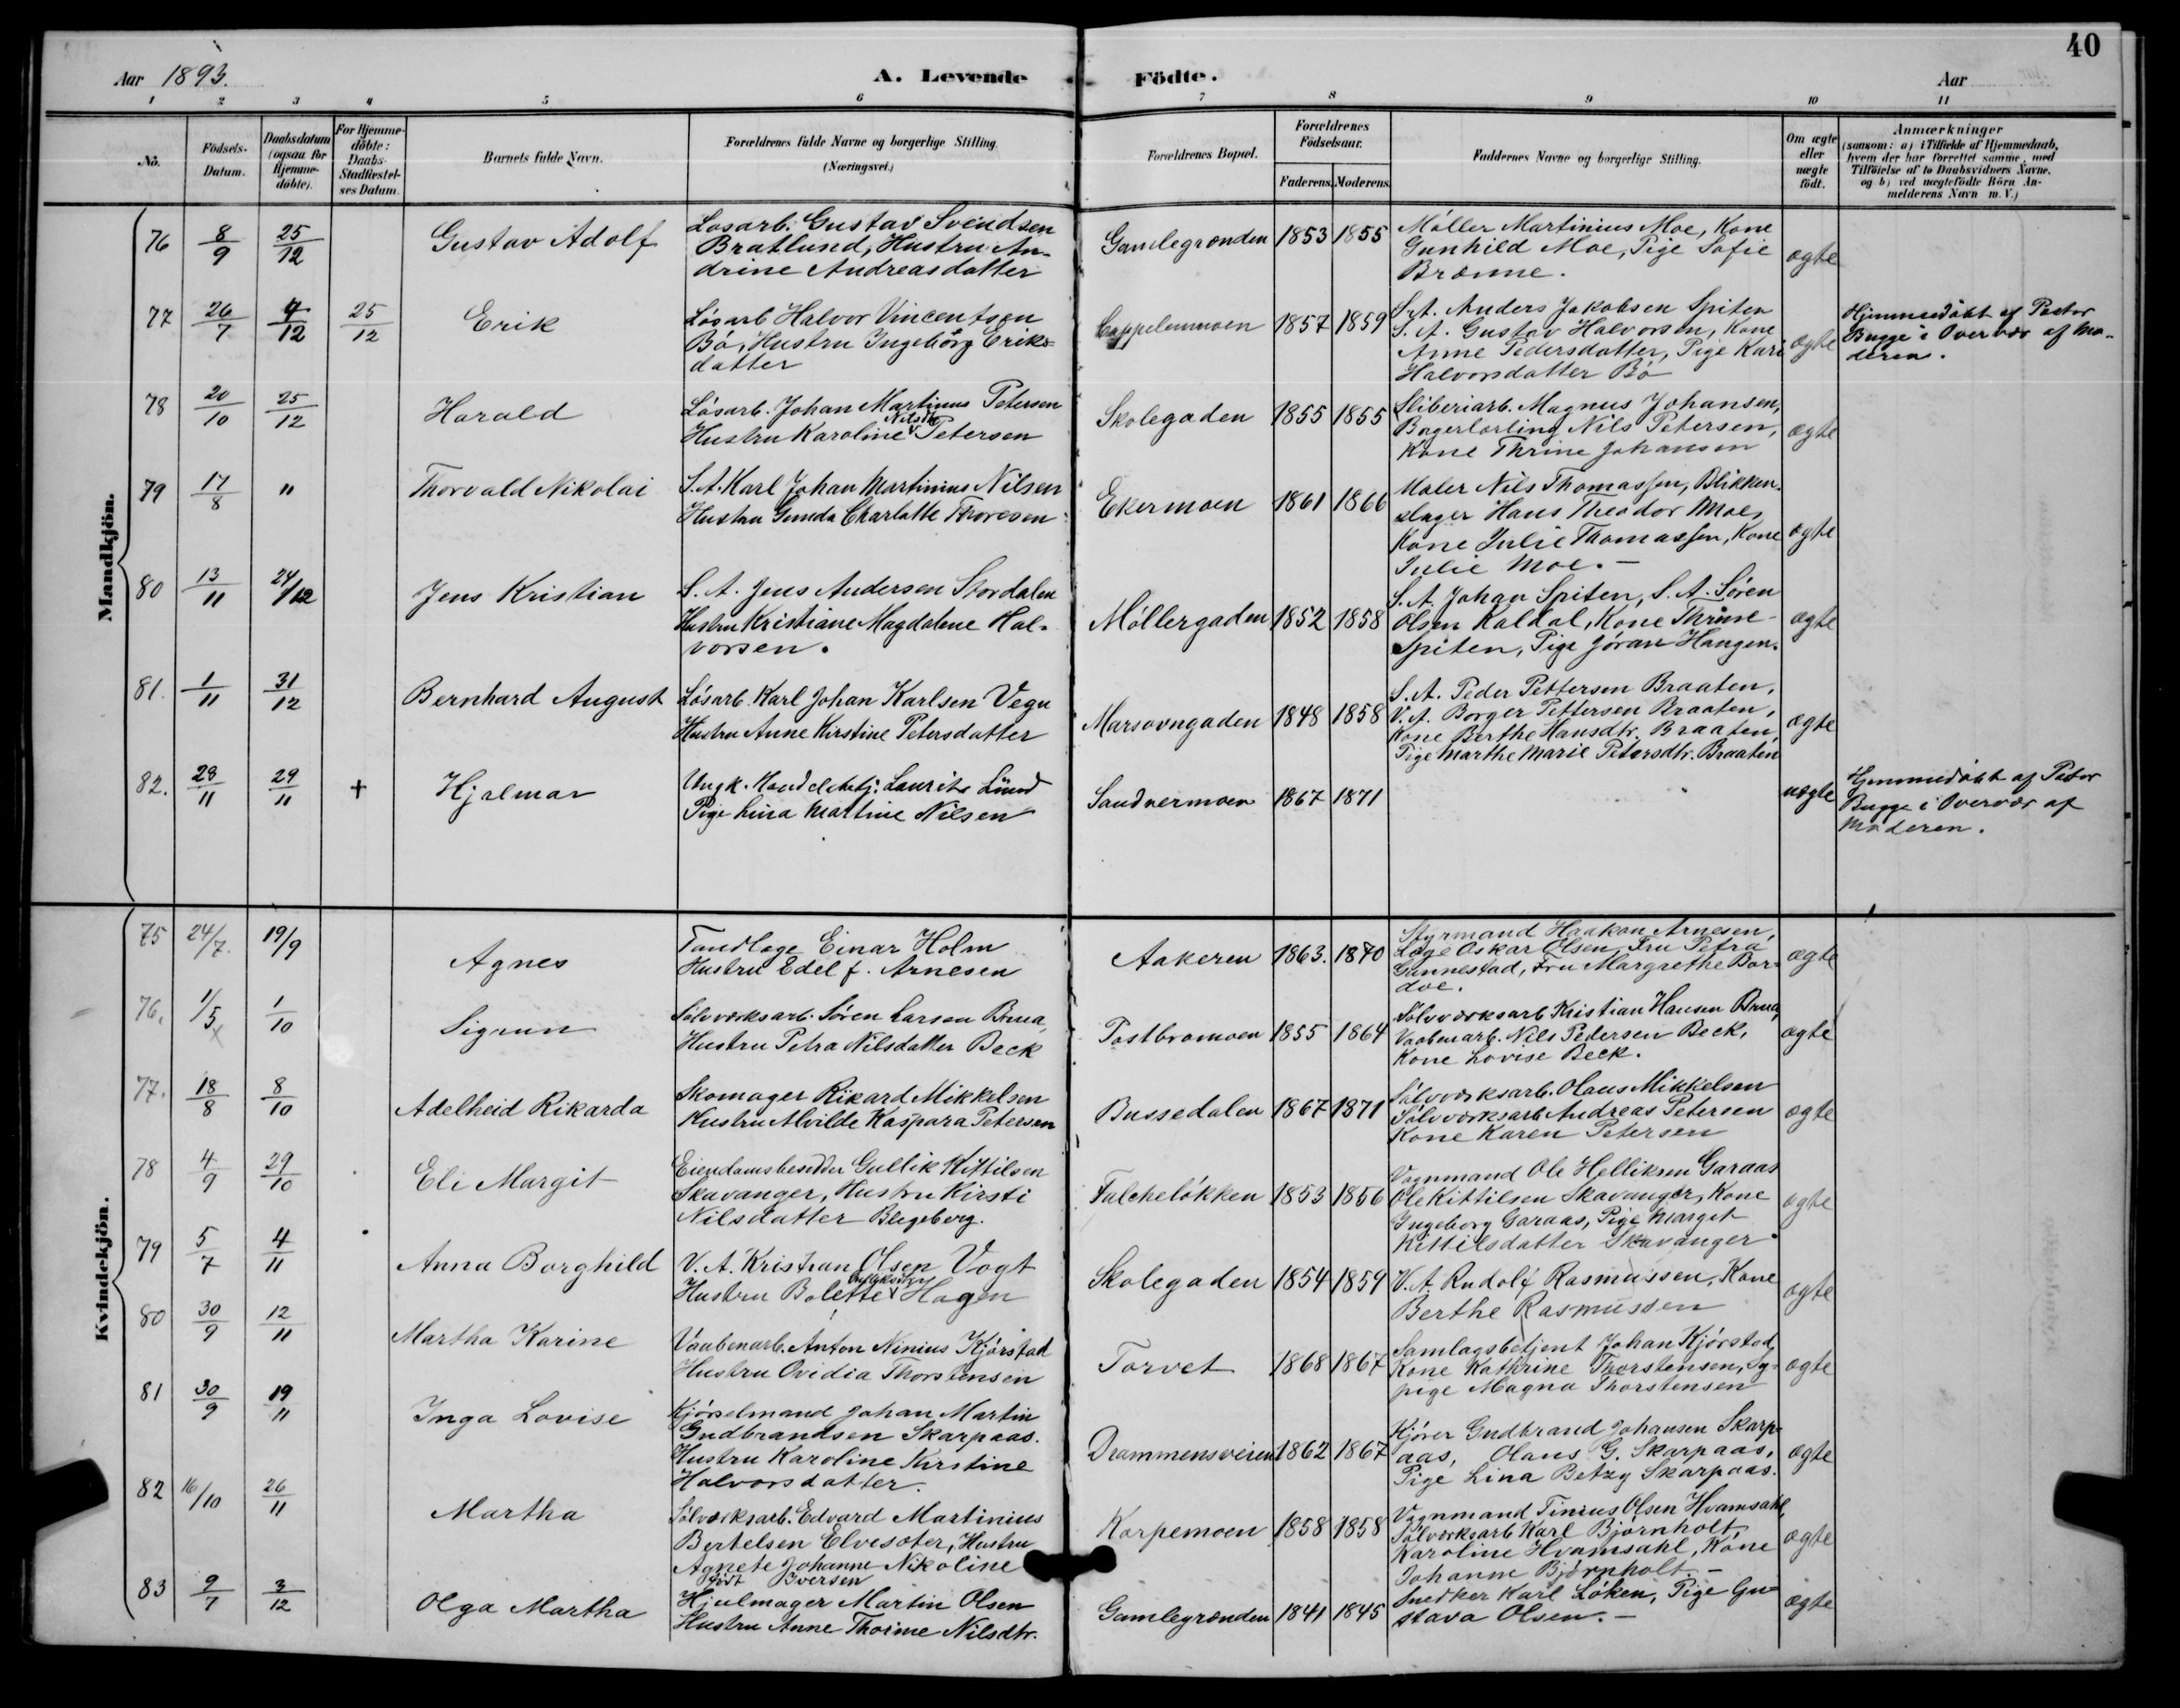 40
Aar 1893.
A. Levende Födte.
Aar
1 2 3 4 5 6 7 8 9 10 11
No.
Födsels-Datum.
Daabsdatum (ogsaa for Hjemme-döbte).
For Hjemme-döbte: Daabs-Stadfæstel-ses Datum.
Barnets fulde Navn.
Forældrenes fulde Navne og borgerlige Stilling. (Næringsvei.)
Forældrenes Bopæl.
Forældrenes Födselsaar.
Faderens. Moderens.
Faddernes Navne og borgerlige Stilling.
Om ægte eller uægte födt.
Anmærkninger
(saasom: a) i Tilfælde af Hjemmedaab,
hvem der har forrettet samme, med
Tilföielse af to Daabsvidners Navne.
og b) ved uægtefödte Börn An-
melderens Navn m. V.)
Mandkjön.
76 8/9 25/12 Gustav Adolf
Løsarb. Gustav Svendsen
Bratlund, Hustru An-
drine Andreasdatter
Gamlegrænden 1853 1855
Møller Martinius Moe, Kone
Gunhild Moe, Pige Sofie
Brænne.
ægte
77 26/7 9/12 25/12 Erik
Løsarb Halvor Vincentsen
Bø, Hustru Ingeborg Eriks-
datter
Cappelenmoen 1857 1859
S.A. Anders Jakobsen Spiten
S. A. Gustav Halvorsen, Kone
Anne Pedersdatter, Pige Kari
Halvorsdatter Bø
ægte
Hjemmedøbt af Pastor
Bugge i Overvær af Mo-
deren.
78 20/10 25/12 Harald
Løsarb. Johan Martinus Petersen
Hustru Karoline Nilsdtr Petersen
Skolegaden 1855 1855
Sliberiarb. Magnus Johansen,
Bagerlærling Nils Petersen,
Kone Thrine Johansen
ægte
79 17/8 " Thorvald Nikolai
S. A. Karl Johan Martinius Nilsen
Hustru Gunda Charlotte Thoresen
Ekermoen 1861 1866
Maler Nils Thomassen, Blikken-
slager Hans Theodor Moe,
Kone Julie Thomassen, Kone
Julie Moe. —
ægte
80 13/11 24/12 Jens Kristian
S. A. Jens Andersen Stordalen
Hustru Kristiane Magdalene Hal-
vorsen.
Møllergaden 1852 1858
S. A. Johan Spiten, S. A. Søren
Olsen Kaldal, Kone Thrine
Spiten, Pige Jøran Haugen.
ægte
81. 1/11 31/12 Bernhard August
Løsarb. Karl Johan Karlsen Vegu
Hustru Anne Kirstine Petersdatter
Marsovngaden 1848 1858
S. A. Peder Pettersen Braaten,
V. A. Borger Pettersen Braaten,
Kone Berthe Hansdtr. Braaten,
Pige Marthe Marie Petersdtr. Braaten
ægte
82. 23/11 29/11 + Hjalmar
Ungk. Handelsbetj. Laurits Lund
Pige Lina Martine Nilsen
Sandnermoen 1867 1871
uægte
Hjemmedøbt af Pastor
Bugge i Overvær af
Moderen.
Kvindekjön.
75 24/7. 19/9 Agnes
Tandlæge Einar Holm
Hustru Edel f. Arnesen
Aakeren 1863. 1870
Styrmand Haakon Arnesen,
Læge Oskar Olsen, Fru Petra
Gannestad, Fru Margrethe Bor-
doe.
ægte
76. 1/5 x 1/10 Sigrun
Sølvværksarb. Søren Larsen Brua,
Hustru Petra Nilsdatter Beck
Postbromoen 1855 1864
Sølvværksarb Kristian Hansen Brua,
Vaabenarb. Nils Pedersen Beck,
Kone Lovise Beck.
ægte
77. 18/8 8/10 Adelheid Rikarda
Skomager Rikard Mikkelsen
Hustru Alvilde Kaspara Petersen
Bussedalen 1867 1871
Sølvværksarb. Olaus Mikkelsen
Sølvværksarb Andreas Petersen
Kone Karen Petersen
ægte
78 4/9 29/10 Eli Margit
Eiendomsbesidder Gullik Kittilsen
Skavanger, Hustru Kirsti
Nilsdatter Blegeberg.
Falcheløkken 1853 1856
Vognmand Ole Helliksen Garaas
Ole Kittilsen Skavanger, Kone
Ingeborg Garaas, Pige Margit
Kittilsdatter Skavanger
ægte
79 5/7 4/11 Anna Borghild
V. A. Kristian Olsen Vogt
Hustru Bolette Hagen
Skolegaden 1854 1859
V. A. Rudolf Rasmussen, Kone
Berthe Rasmussen
ægte
80 30/9 12/11 Martha Karine
Vaabenarb. Anton Ninius Kjørstad
Hustru Ovidia Thorstensen
Torvet 1868 1867
Samlagsbetjent Johan Kjørstad,
Kone Kathrine Thorstensen, Sy-
pige Magna Thorstensen
ægte
81 30/9 19/11 Inga Lovise
Kjørselmand Johan Martin
Gudbrandsen Skarpaas.
Hustru Karoline Kirstine
Halvorsdatter.
Drammensveien 1862 1867
Kjører Gudbrand Johansen Skarp-
aas, Olaus G. Skarpaas,
Pige Lina Betzy Skarpaas.
ægte
82 16/10 26/11 Martha
Sølvværksarb. Edvard Martinius
Bertelsen Elvesæter, Hustru
Agnete Johanne Nikoline
født Iversen
Korpemoen 1858 1858
Vognmand Tinius Olsen Hvamsahl,
Sølvværksarb Karl Bjørnholt,
Karoline Hvamsahl, Kone
Johanne Bjørnholt. —
ægte
83 9/7 3/12 Olga Martha
Hjulmager Martin Olsen
Hustru Anne Thorine Nilsdtr.
Gamlegrænden 1841 1845
Snedker Karl Løken, Pige Gu-
stava Olsen. —
ægte